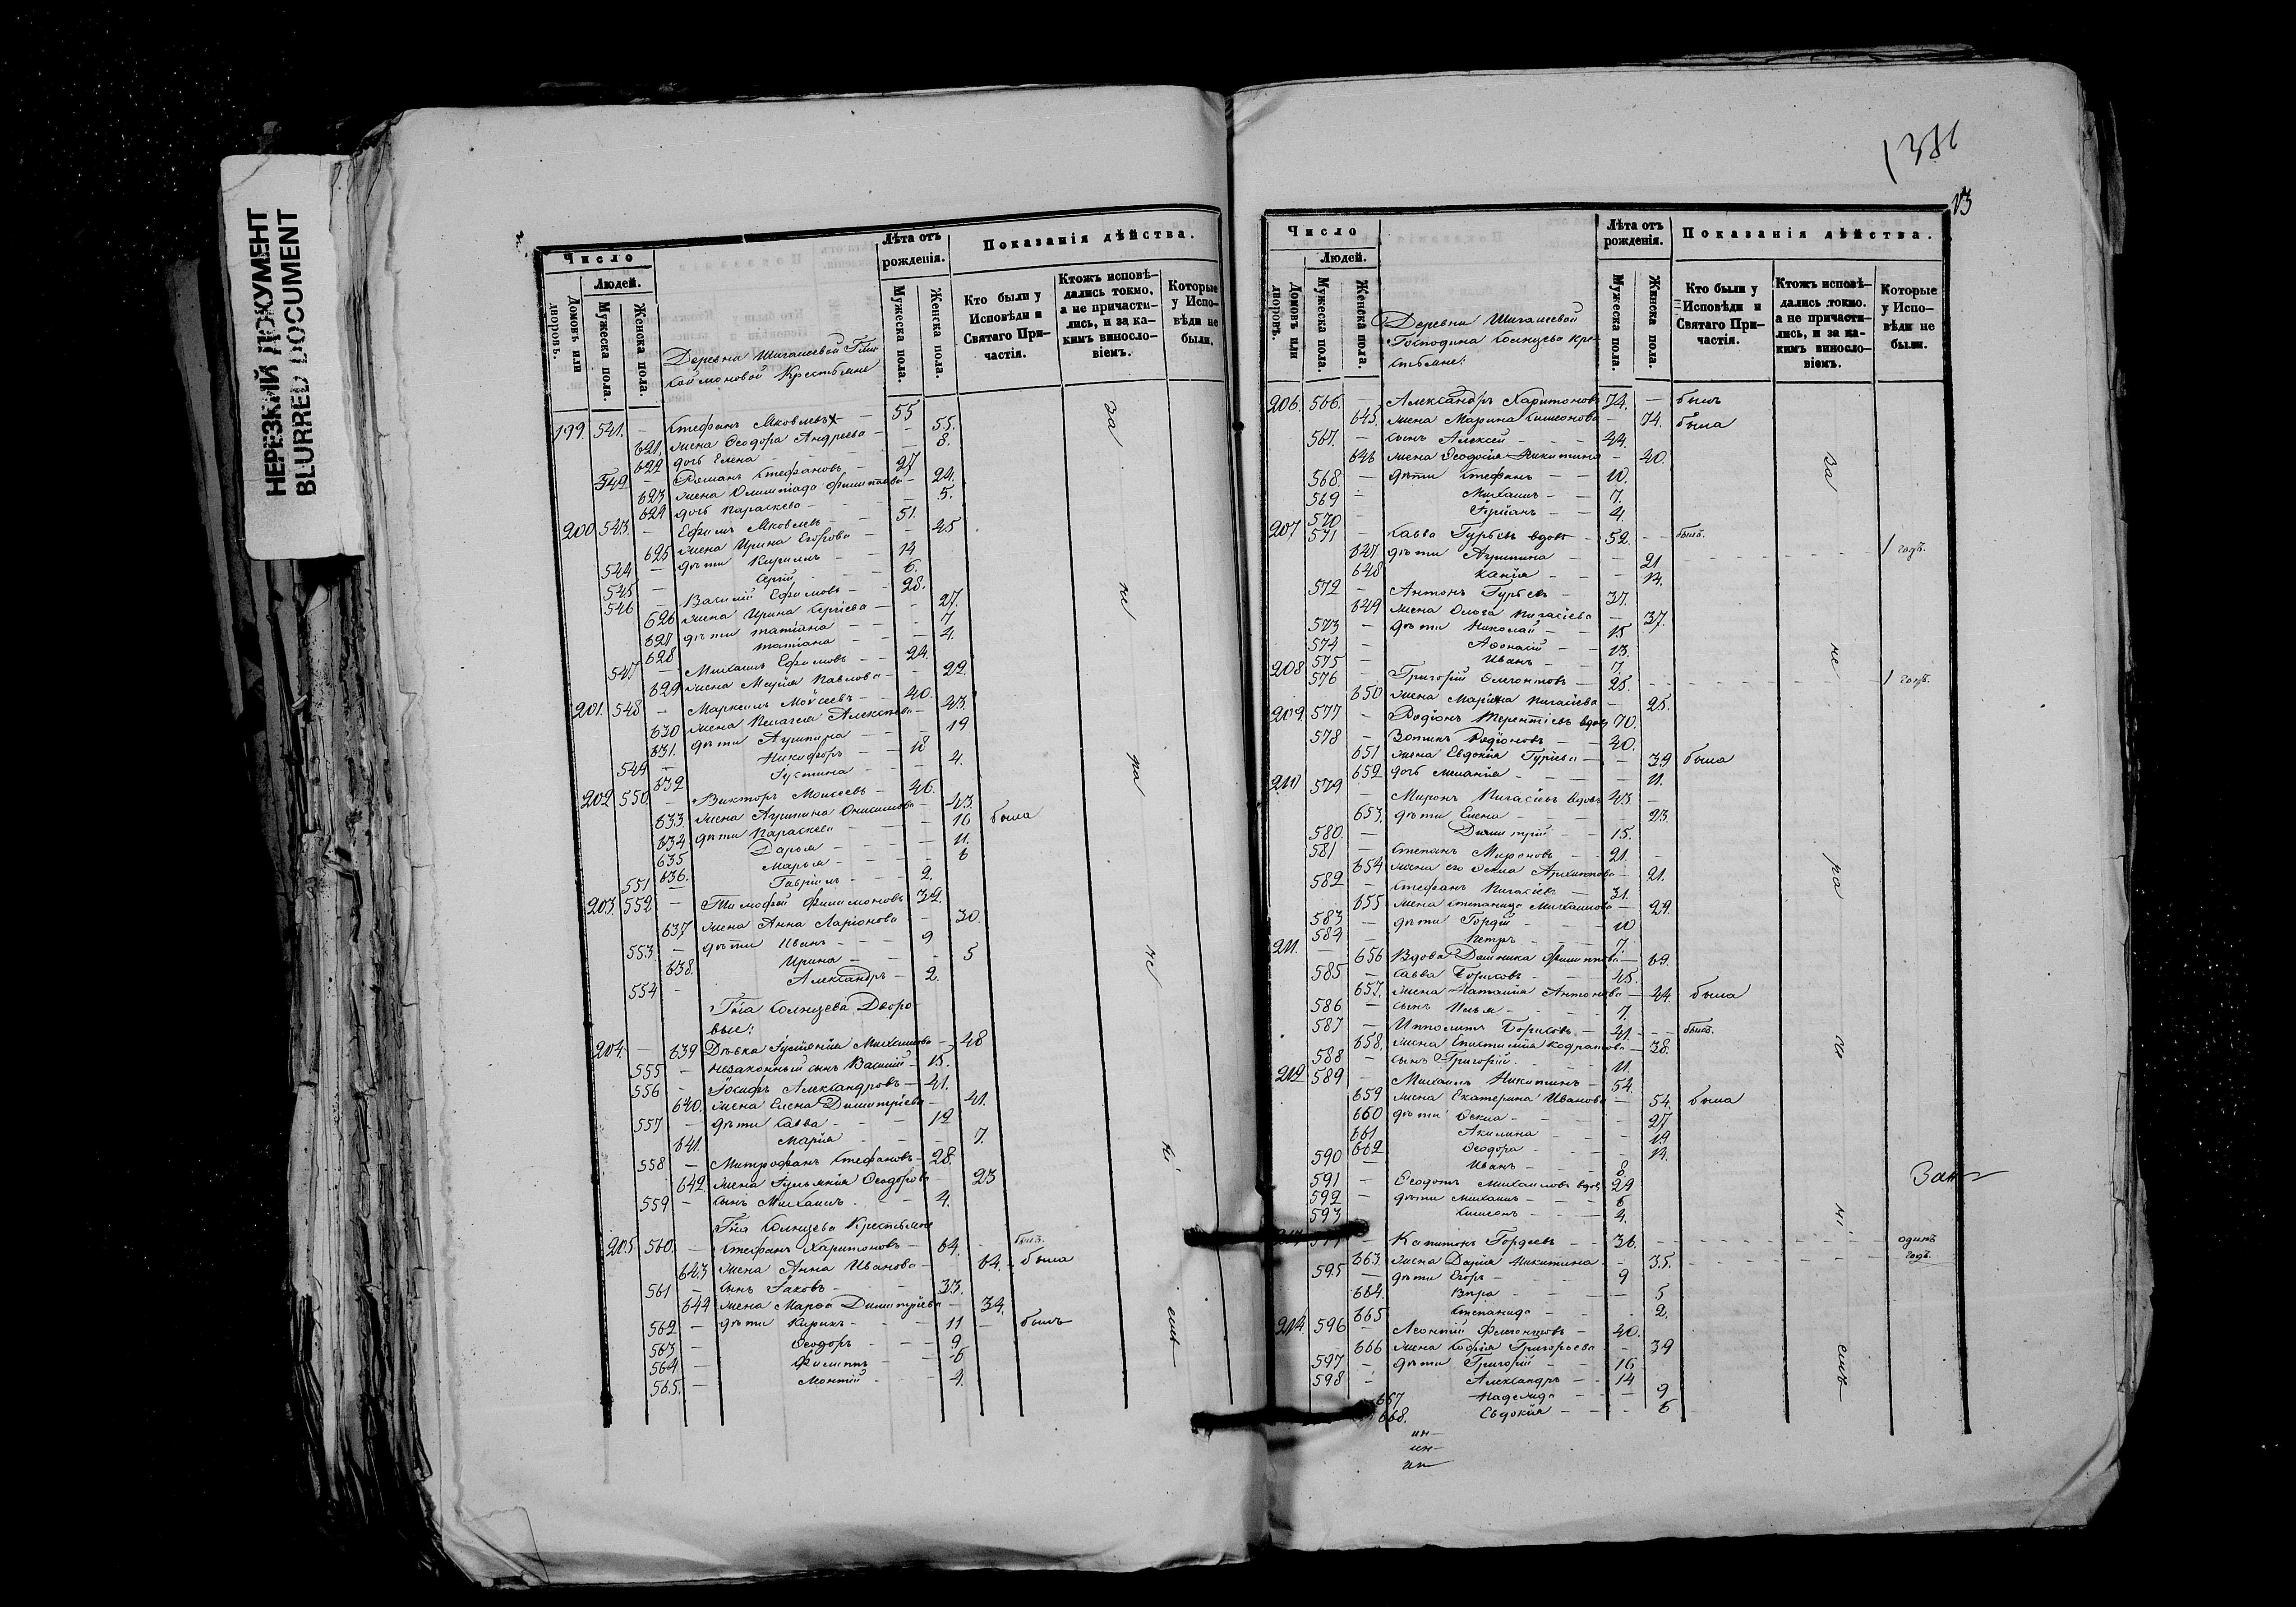 НЕРЕЗКИЙ ДОКУМЕНТ
BLURRED DOCUMENT
Число
Людей.
Домовъ или дворовъ.
Мужеска пола.
Женска пола.
Лѣта отъ рожденія.
Мужеска пола.
Женска пола.
Показанія дѣйства.
Кто были у Исповѣди и Святаго Причастія.
Ктожъ исповѣдались токмо, а не причастились, и за какимъ винословіемъ.
Которые у Исповѣди не были.
Деревни Шигалеевой Крестьяне
199. 541. — Стефанъ Яковлевъ — 55
621. жена Ѳеодора Андреева — 55.
622 дочь Елена — 8.
542 — Романъ Стефановъ — 27
623 жена Олимпіада Филиппова — 24.
624 дочь Параскева — 5.
200 543. — Ефимъ Яковлевъ — 51.
625 жена Ирина Егорова — 45
544 — дѣти Кириллъ — 14
545 — Сергій — 6.
546 — Василій Ефимовъ — 28.
626 жена Ирина Сергіева — 27.
627 дѣти Татіана — 7
628 Татіана — 4.
547 — Михаилъ Ефимовъ — 24.
629 жена Марія Павлова — 22.
201. 548 — Маркелъ Моисеевъ — 40.
630 жена Пелагея Алексѣева — 43
631. дѣти Агрипина — 19
549 — Никифоръ — 18
632 Іустина — 4.
202 550. — Викторъ Моисеевъ — 46.
633. жена Агрипина Онисимова — 43.
634 дѣти Параскева — 16 была
635 Дарья — 11.
636. Марья — 6
551 — Гавріилъ — 2.
203. 552 — Тимофей Филимоновъ 32.
637 жена Анна Ларіонова — 30.
553. — дѣти Иванъ — 9
638. Ирина — 5
554 — Александръ — 2.
Гна Солнцева Дворовые:
204. — 639 Дѣвка Іустинія Михайлова — 48
555 — незаконный сынъ Василій — 15.
556 — Іосифъ Александровъ — 41.
640. жена Елена Димитріева — 41.
557 — дѣти Савва — 12
641. Марія — 7.
558 — Митрофанъ Стефановъ — 28.
642 жена Іуліанія Ѳеодорова 23
559 — сынъ Михаилъ — 4.
Гна Солнцева Крестьяне
205 560. — Стефанъ Харитоновъ — 64. былъ.
643 жена Анна Иванова — 64. — была
561 — сынъ Іаковъ — 33.
644 жена Марѳа Димитріева — 34.
562 — дѣти Кирикъ — 11 — былъ
563 — Ѳеодоръ — 9
564 — Филиппъ — 6
565. — Леонтій — 4.
за не ра не ні емъ
13
Число
Людей.
Домовъ или дворовъ.
Мужеска пола.
Женска пола.
Лѣта отъ рожденія.
Мужеска пола.
Женска пола.
Показанія дѣйства.
Кто были у Исповѣди и Святаго Причастія.
Ктожъ исповѣдались токмо, а не причастились, и за какимъ винословіемъ.
Которые у Исповѣди не были.
Деревни Шигалеевой
Господина Солнцева крестьяне:
206. 566. — Александръ Харитоновъ 74. — былъ
645. жена Марина Симеонова — 74. была
567. — сынъ Алексѣй — 44.
646 жена Ѳеодосія Никитина — 40.
568. — дѣти Стефанъ — 10.
569 — Михаилъ — 7.
570 — Іуліанъ — 4.
207 571 — Савва Гурьевъ вдовъ — 52. — былъ.
647 дѣти Агрипина — 21 1 годъ.
648 Ксенія — 14.
572 — Антонъ Гурьевъ — 37.
649 жена Ольга Пигасіева — 37.
573 — дѣти Николай — 15
574 — Аѳонасій — 13.
575 — Иванъ — 7.
208 576 — Григорій Флегонтовъ — 25. 1 годъ.
650 жена Марина Пигасіева — 25.
209 577 — Родіонъ Терентіевъ вдовъ 70.
578 — Зотикъ Родіоновъ — 40.
651 жена Евдокія Гуріева — 39 была
652 дочь Меланія — 11.
210 579 — Миронъ Пигасіевъ вдовъ 43. —
653. дѣти Елена — 23.
580. — Димитрій — 15.
581 — Степанъ Мироновъ — 21.
654 жена его Ѳекла Архиппова — 21.
582 — Стефанъ Пигасіевъ — 31.
655 жена Степанида Михайлова — 29.
583 — дѣти Гордій — 10
584 — Петръ — 7.
211. — 656 Вдова Домника Филиппова — 69.
585 — Савва Борисовъ — 45.
657. жена Наталія Антонова — 44. была
586 — сынъ Илья — 7.
587 — Ипполитъ Борисовъ — 41. — былъ.
658. жена Епистимія Кодратова — 38.
588 — сынъ Григорій — 11.
212 589 — Михаилъ Никитинъ — 54.
659 жена Екатерина Иванова — 54. была
660 дѣти Ѳекла — 27
661 Акилина — 19
662 Ѳеодора — 14.
590 — Иванъ — 8
591 — Ѳеодотъ Михайловъ вдовъ 29
592 — дѣти Михаилъ — 6
593 Симеонъ — 4.
Капитонъ Гордеевъ — 36. одинъ годъ.
663. жена Дарія Никитина — 35.
595 — дѣти Егоръ — 9
664. Вѣра — 5
665 Степанида — 2.
214. 596 — Леонтій Флегонтовъ — 40.
666 жена Софія Григорьева — 39
597 — дѣти Григорій — 16
598 — Александръ — 14
667 Надежда — 9
668. Евдокія — 6
за не ра не ні емъ